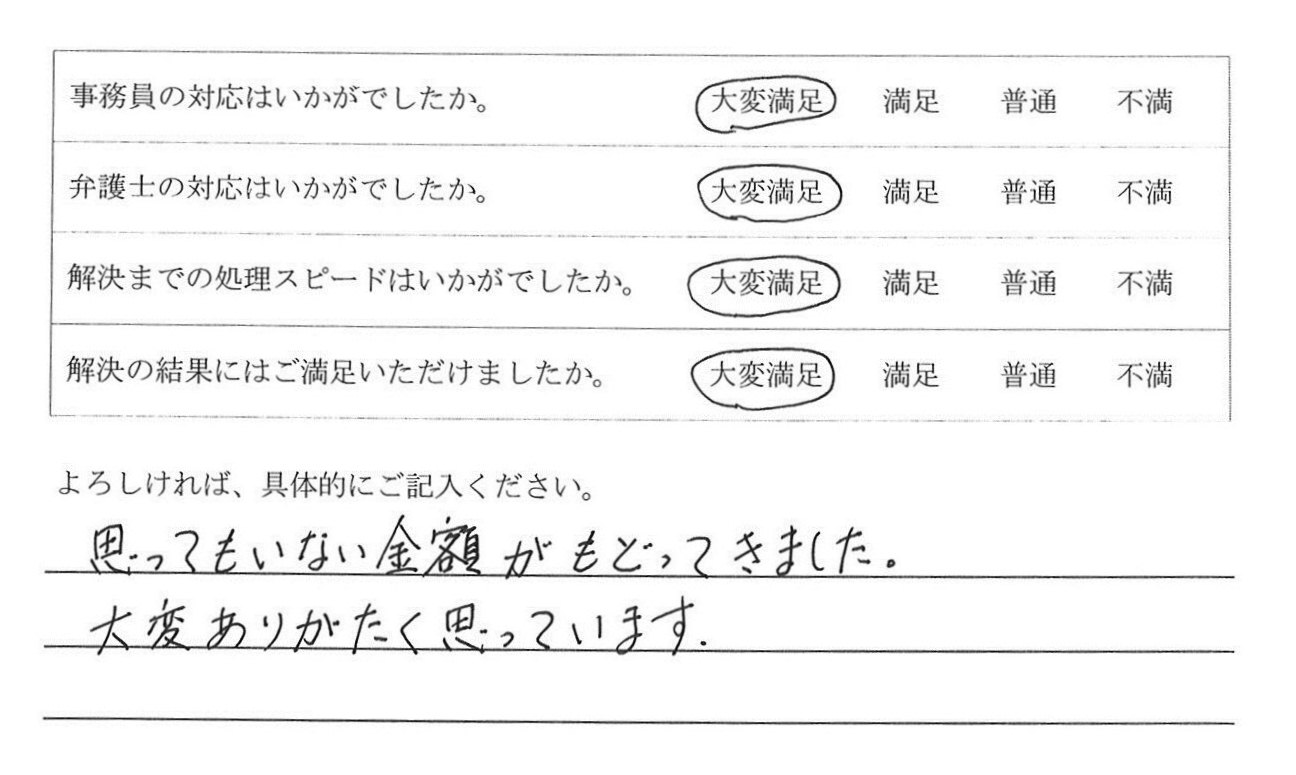 事務員の対応はいかがでしたか。 大変満足 満足 普通 不満
弁護士の対応はいかがでしたか。 大変満足 満足 普通 不満
解決までの処理スピードはいかがでしたか。 大変満足 満足 普通 不満
解決の結果にはご満足いただけましたか。 大変満足 満足 普通 不満
よろしければ、具体的にご記入ください。
思ってもいない金額がもどってきました。
大変ありがたく思っています.